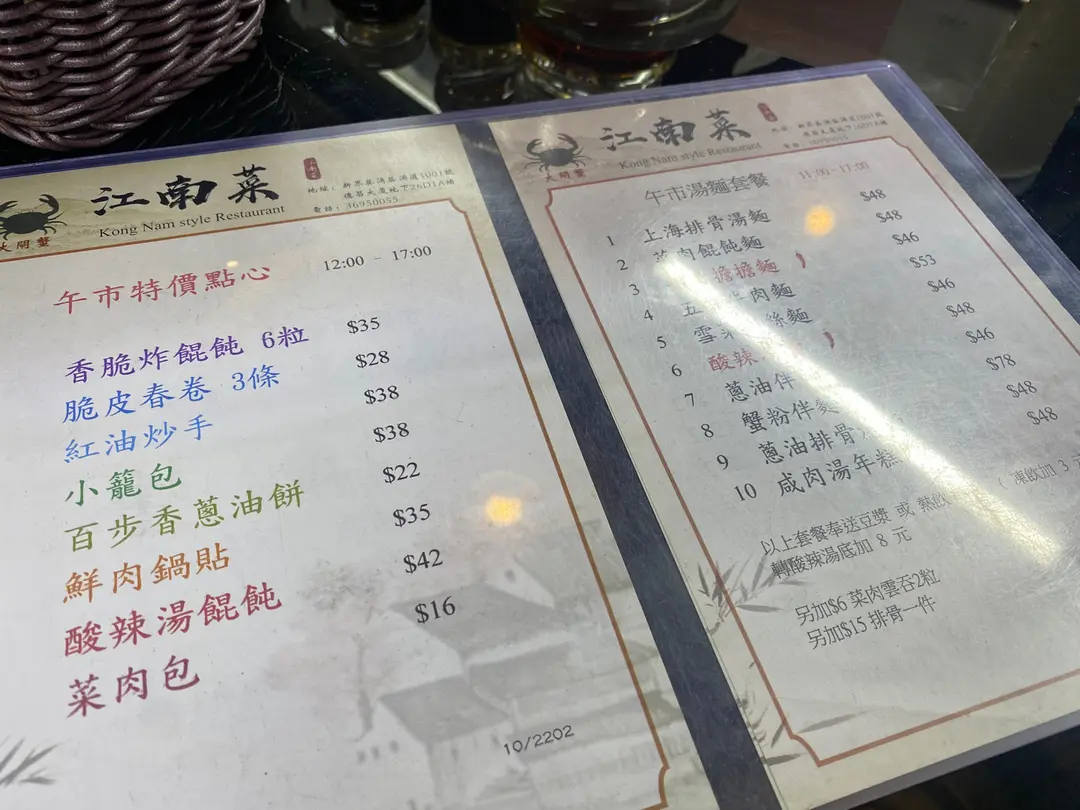 江南菜
Kong Nam style Restaurant
大閘蟹
電話：36950055
午市特價點心 12:00 - 17:00
香脆炸餛飩 6粒 $35
脆皮春卷 3條 $28
紅油炒手 $38
小籠包 $38
百步香蔥油餅 $22
鮮肉鍋貼 $35
酸辣湯餛飩 $42
菜肉包 $16
10/2202
江南菜
Kong Nam style Restaurant
大閘蟹
午市湯麵套餐 11:00 - 17:00
1 上海排骨湯麵 $48
2 菜肉餛飩麵 $48
3 擔擔麵 $46
4 五 肉麵 $53
5 雪 絲麵 $46
6 酸辣 $48
7 蔥油伴 $46
8 蟹粉伴麵 $78
9 蔥油排骨 $48
10 咸肉湯年糕 $48
以上套餐奉送豆漿 或 熱飲 ( 凍飲加 3
轉酸辣湯底加 8 元
另加$6 菜肉雲吞2粒
另加$15 排骨一件